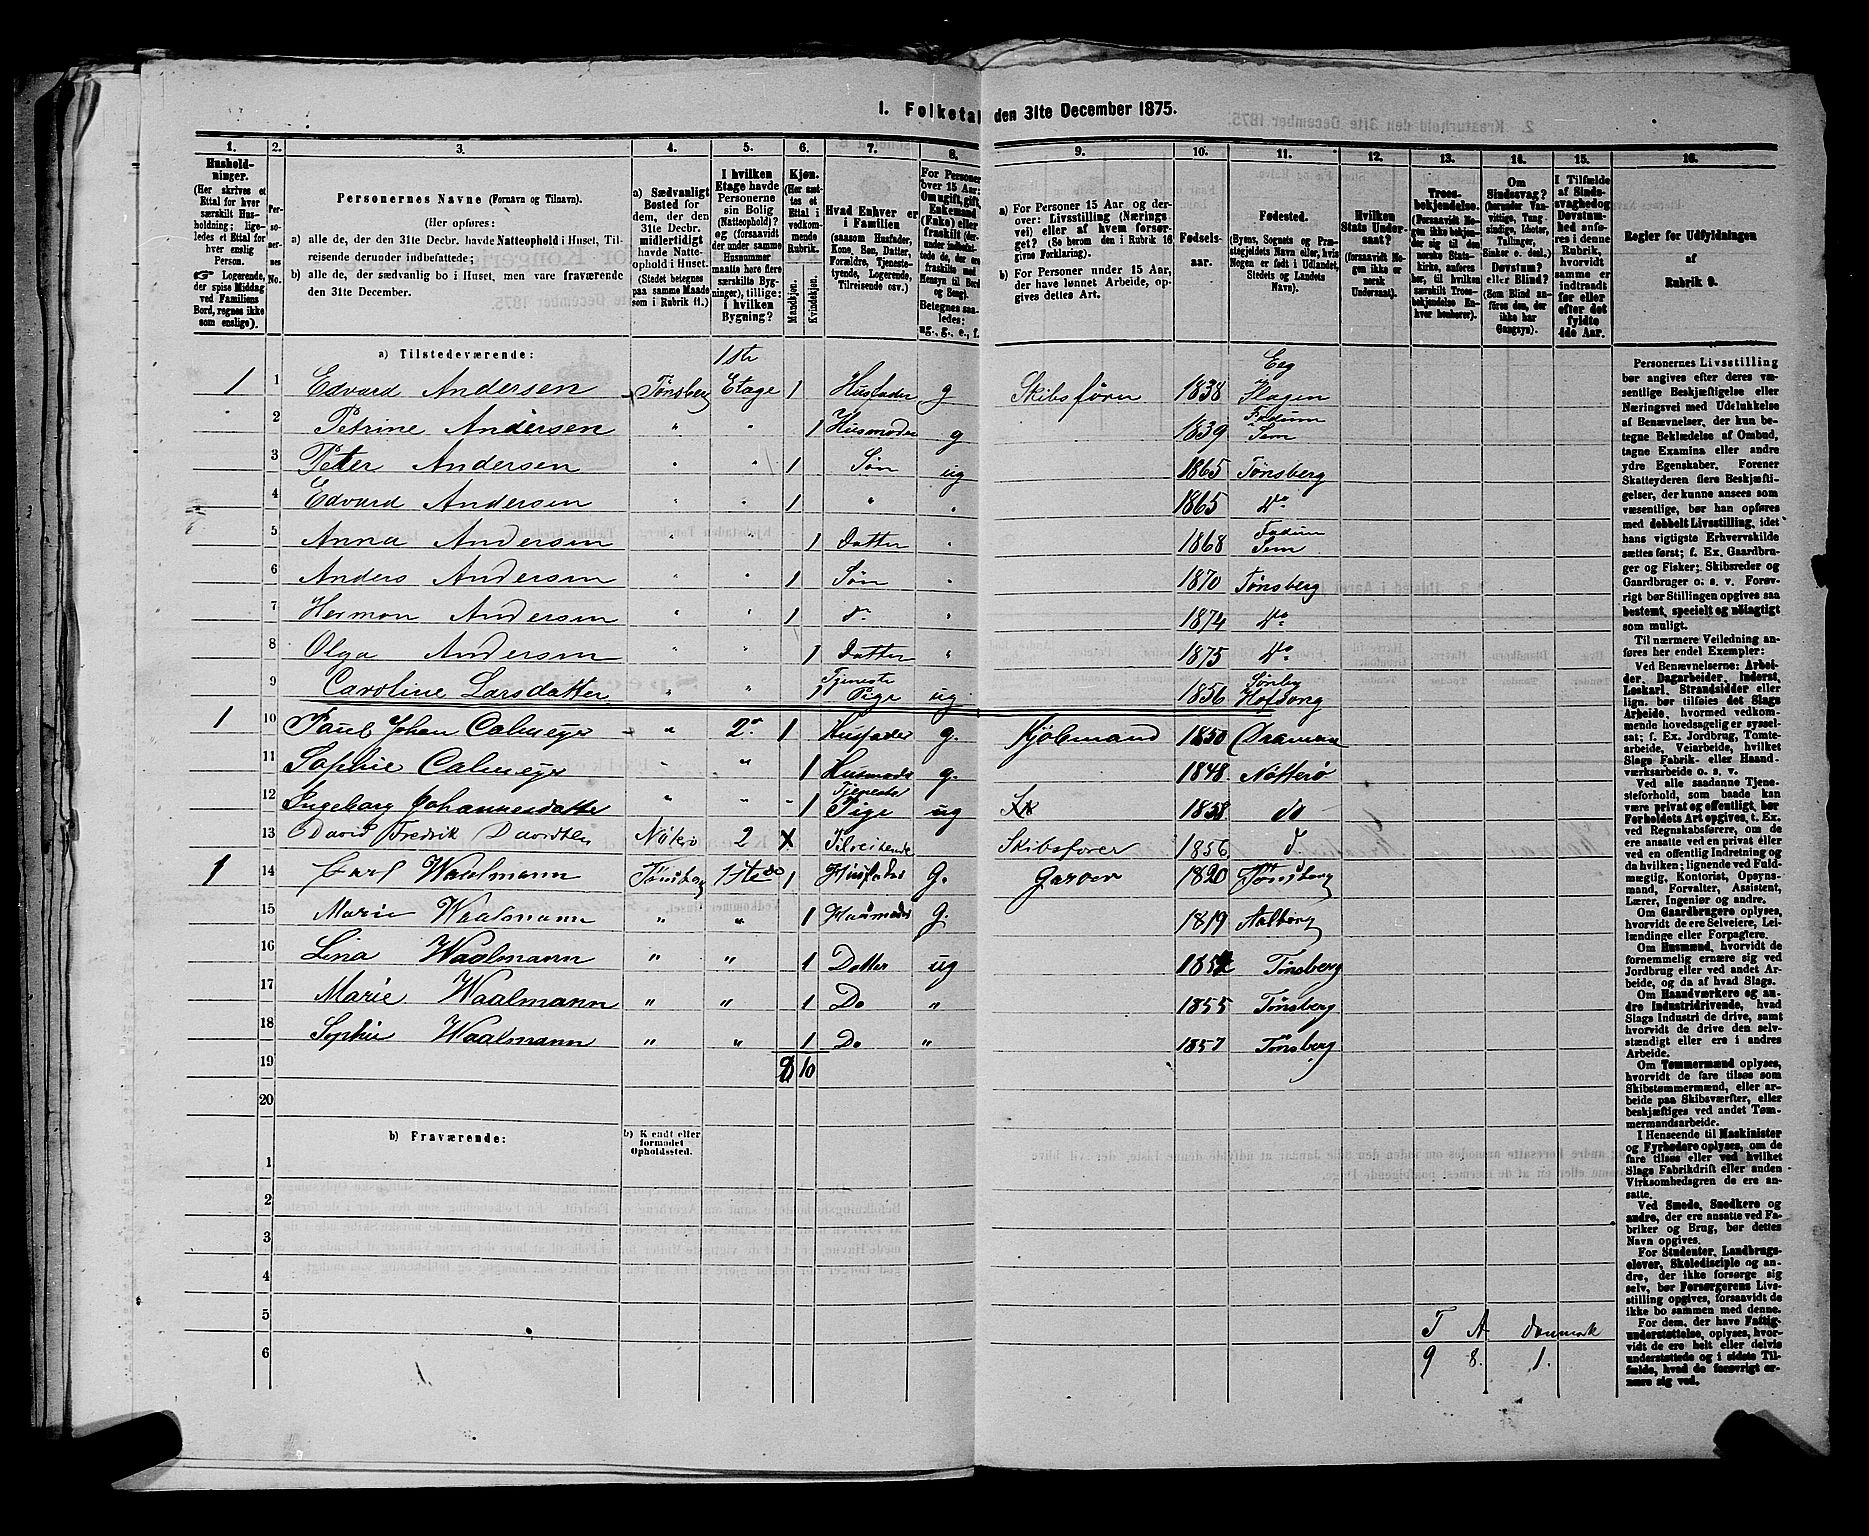 1. Folketal den 31te December 1875.
1. 2. 3. 4. 5. 6. 7. 8. 9. 10. 11. 12. 13. 14. 15. 16.
Husholdninger. (Her skrives et Ettal for hver særskilt Husholdning; ligeledes et Ettal for hver enslig Person.
☞ Logerende, der spise Middag ved Familiens Bord, regnes ikke som enslige).
Personernes No.
Personernes Navne (Fornavn og Tilnavn).
(Her opføres:
a) alle de, der den 31te Decbr. havde Natteophold i Huset, Tilreisende derunder indbefattede;
b) alle de, der sædvanlig bo i Huset, men vare fraværende den 31te December.
a) Sædvanligt Bosted for dem, der den 31te Decbr. midlertidigt havde Natteophold i Huset. (Stedet betegnes paa samme Maade som i Rubrik 11.)
I hvilken Etage havde Personerne sin Bolig (Natteophold)? og (forsaavidt der under samme Husnummer maatte høre flere særskilte Bygninger), tillige: i hvilken Bygning?
Kjøn. (Her sættes et Ettal i vedkommende Rubrik.
Mandkjøn. Kvindekjøn.
Hvad Enhver er i Familien (saasom Husfader, Kone, Søn, Datter, Forældre, Tjenestetyende, Logerende, Tilreisende osv.)
a) For Personer 15 Aar og derover: Livsstilling (Næringsvei) eller af hvem forsørget? (Se herom den i Rubrik 16 givne Forklaring).
b) For Personer under 15 Aar, der have lønnet Arbeide, opgives dettes Art.
Fødselsaar.
Fødested. (Byens, Sognets og Præstegjeldets Navn eller, hvis Nogen er født i Udlandet, Stedets og Landets Navn).
Hvilken Stats Undersaat? (forsaavidt Nogen ikke er norsk Undersaat.)
Troesbekjendelse. (Forsaavidt Nogen ikke bekjender sig til den norske Statskirke, anføres her, til hvilken særskilt Troesbekjendelse Enhver henhører).
Om Sindssvag? (herunder Vanvittige, Tungsindige, Idioter, Tullinger, Sinker o. desl.) Døvstum? eller Blind? (Som Blind anføres den, der ikke har Gangsyn).
I Tilfælde af Sindssvaghed og Døvstumhed anføres i denne Rubrik, hvorvidt samme er indtraadt før eller efter det fyldte 4de Aar.
Regler for Udfyldningen af Rubrik 9.
a) Tilstedeværende:
1 1 Edvard Andersen Tønsberg 1ste Etage 1 Husfader g Skibsfører 1838 Eeg Slagen
2 Petrine Andersen " " 1 Husmoder g 1839 Fadum Sem
3 Peter Andersen " " 1 Søn ug 1865 Tønsberg
4 Edvard Andersen " " 1 " " 1865 do
5 Anna Andersen " " 1 Datter " 1868 Fadum Sem
6 Anders Andersen " " 1 Søn " 1870 Tønsberg
7 Hermon Andersen " " 1 do " 1874 do
8 Olga Andersen " " 1 Datter " 1875 do
9 Caroline Larsdatter " " 1 Tjeneste Pige ug 1856
1 10 Paul Johan Calmeyer " 2. 1 Husfader g. Kjøbmand 1850 Drammen
11 Sophie Calmeyer " " 1 Husmoder g. 1848 Nøtterø
12 Ingeborg Johannesdatter " " 1 Tjeneste Pige ug 1858 do
13 David Fredrik 2 X Tilreisende Skibsfører 1856 d
1 14 Carl Waalmann Tønsberg 1ste do 1 Husfader G. Garver 1820 Tønsberg
15 Marie Waalmann " " 1 Husmoder G. 1819 Aalborg
16 Lina Waalmann " " 1 Datter ug Tønsberg
17 Marie Waalmann " " 1 Do " 1855 Tønsberg
18 Sophie Waalmann " " 1 Do " 1857 Tønsberg
19 10
20
b) Fraværende:
b) Kendt eller formodet Opholdssted.
1
2
3
4
5
6
T A Danmark
9 8. 1.
Personernes Livsstilling bør angives efter deres væsentlige Beskjæftigelse eller Næringsvei med Udelukkelse af Benævnelser, der kun betegne Beklædelse af Ombud, tagne Examina eller andre ydre Egenskaber. Forener Skatteyderen flere Beskjæftigelser, der kunne ansees som væsentlige, bør han opføres med dobbelt Livsstilling, idet hans vigtigste Erhvervskilde sættes først; f. Ex. Gaardbruger og Fisker; Skibsreder og Gaardbruger o. s. v. Forøvrigt bør Stillingen opgives saa bestemt, specielt og nøiagtigt som muligt.
Til nærmere Veiledning anføres her endel Exempler:
Ved Benævnelserne: Arbeider, Dagarbeider, Inderst, Løskarl, Strandsidder eller lign. bør tilføies det Slags Arbeide, hvormed vedkommende hovedsagelig er sysselsat; f. Ex. Jordbrug, Tomtearbeide, Veiarbeide, hvilket Slags Fabrik- eller Haandværksarbeide o. s. v.
Ved alle saadanne Tjenesteforhold, som baade kan være privat og offentligt, bør Forholdets Art opgives, t. Ex. ved Regnskabsførere, om de ere ansatte ved en privat eller ved en offentlig Indretning og da hvilken; lignende ved Fuldmægtig, Kontorist, Opsynsmand, Forvalter, Assistent, Lærer, Ingeniør og andre.
Om Gaardbrugere oplyses, hvorvidt de ere Selveiere, Leilændinge eller Forpagtere.
Om Husmænd, hvorvidt de fornemmelig ernære sig ved Jordbrug eller ved andet Arbeide, og da af hvad Slags.
Om Haandværkere og andre Industridrivende, hvad Slags Industri de drive, samt hvorvidt de drive den selvstændigt eller ere i andres Arbeide.
Om Tømmermænd oplyses, hvorvidt de fare tilsøs som Skibstømmermænd, eller arbeide paa Skibsværfter, eller beskjæftiges ved andet Tømmermandsarbeide.
I Henseende til Maskinister og Fyrbødere oplyses, om de fare tilsøs eller ved hvilket Slags Fabrikdrift eller anden Virksomhedsgren de ere ansatte.
Ved Smede, Snedkere og andre, der ere ansatte ved Fabriker og Brug, bør dettes Navn opgives.
For Studenter, Landbrugselever, Skoledisciple og andre, der ikke forsørge sig selv, bør Forsørgerens Livsstilling opgives, forsaavidt de ikke bo sammen med denne.
For dem, der have Fattigunderstøttelse, oplyses, hvorvidt de ere helt eller delvis understøttede og i sidste Tilfælde, hvad de forøvrigt ernære sig ved.